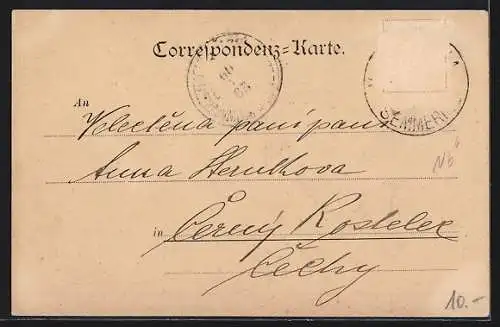 Correspondenz-Karte.
SEMMERI
An Velectěna paní paní
Anna Sternkova
in Černý Kostelec
Čechy
10.-